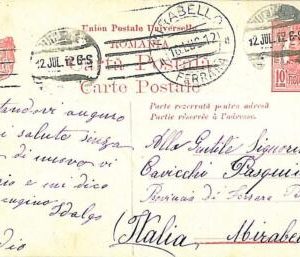 Union Postale Universelle
ROMANIA
Carta Postala
Carte Postale
MIRABELLO
16.7.12
FERRARA
12 JUL. 12 6-S
12 JUL. 12 6-S
10
Parte rezervată pentru adresă
Partie réservée à l'adresse.
auguro
salute senza
di nuovo vi
e mi dico
cugino Idalgo
Addio
Alla Gentile Signorina
Cavicchio Pasquina
Provincia di Ferrara
(Italia) Mirabello